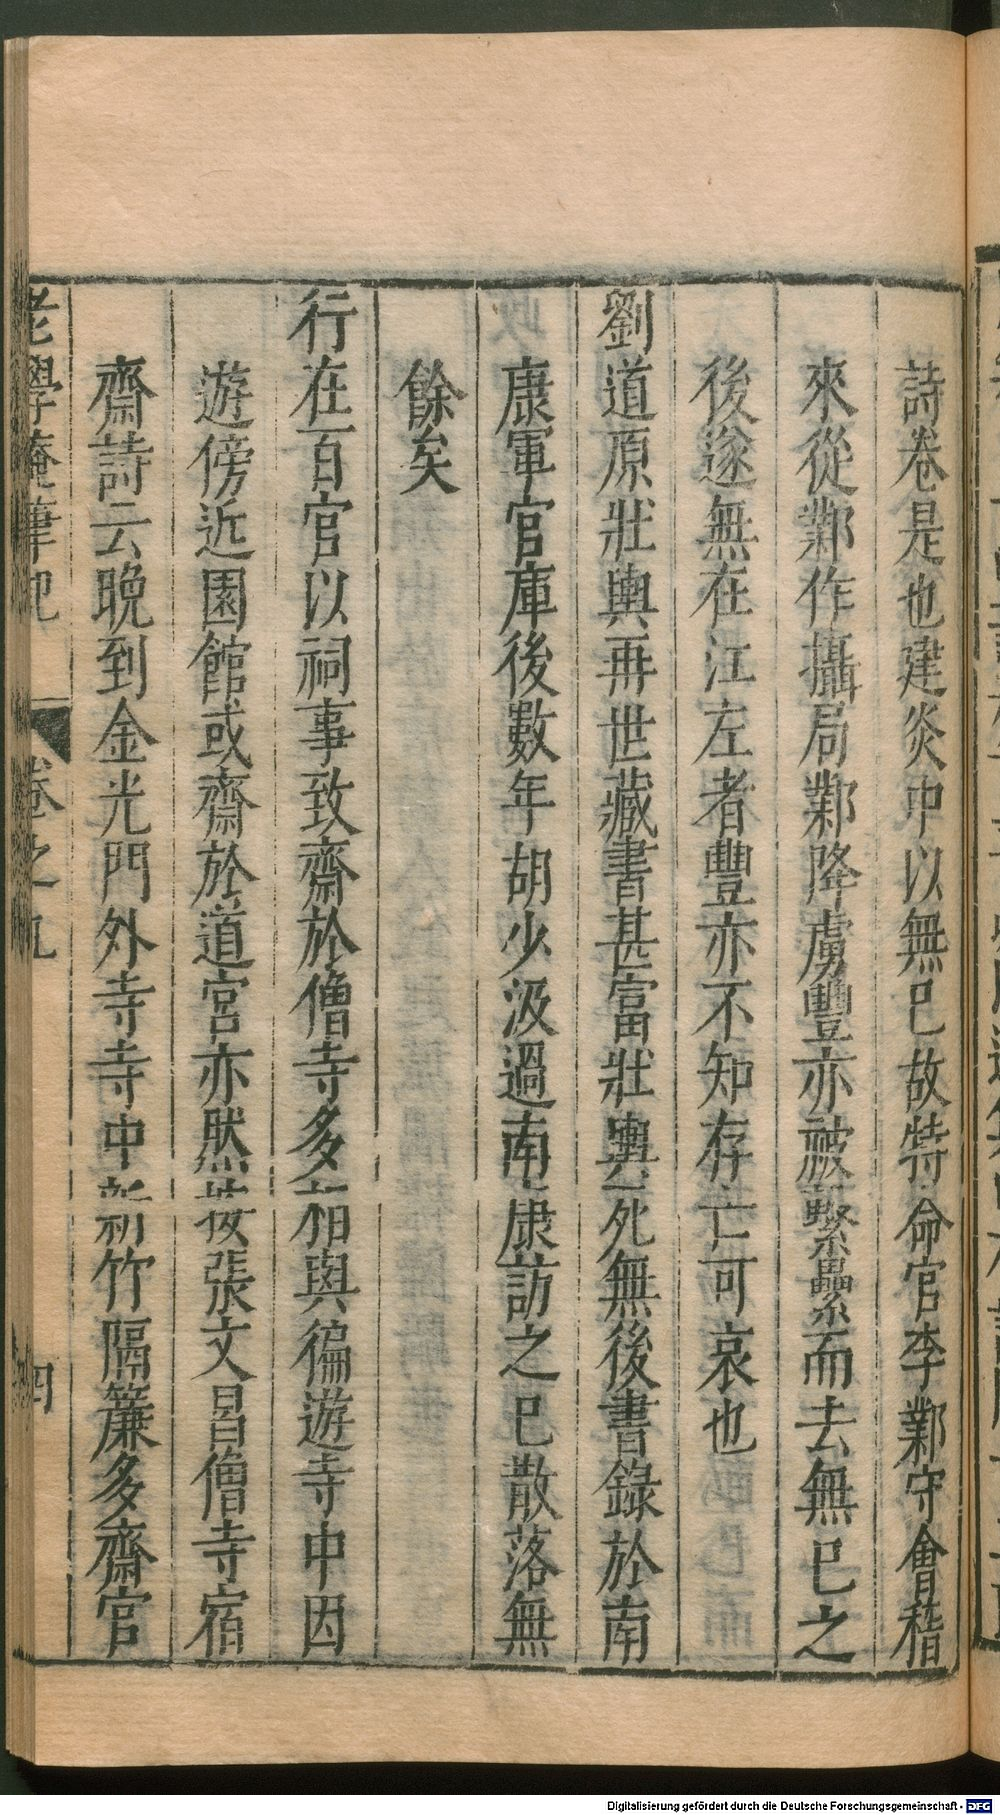 詩卷是也建炎中以無已故特命官李鄴守會稽
來從鄴作攝局鄴降虜豐亦被繫纍而去無已之
後遂無在江左者豐亦不知存亡可哀也
劉道原壯輿再世藏書甚富壯輿死無後書錄於南
康軍官庫後數年胡少汲過南康訪之已散落無
餘矣
行在百官以祠事致齋於僧寺多相與徧遊寺中因
遊傍近園館或齋於道宮亦然按張文昌僧寺宿
齋詩云晚到金光門外寺寺中新竹隔簾多齋官
老學庵筆記 卷之九 四
Digitalisierung gefördert durch die Deutsche Forschungsgemeinschaft - DFG